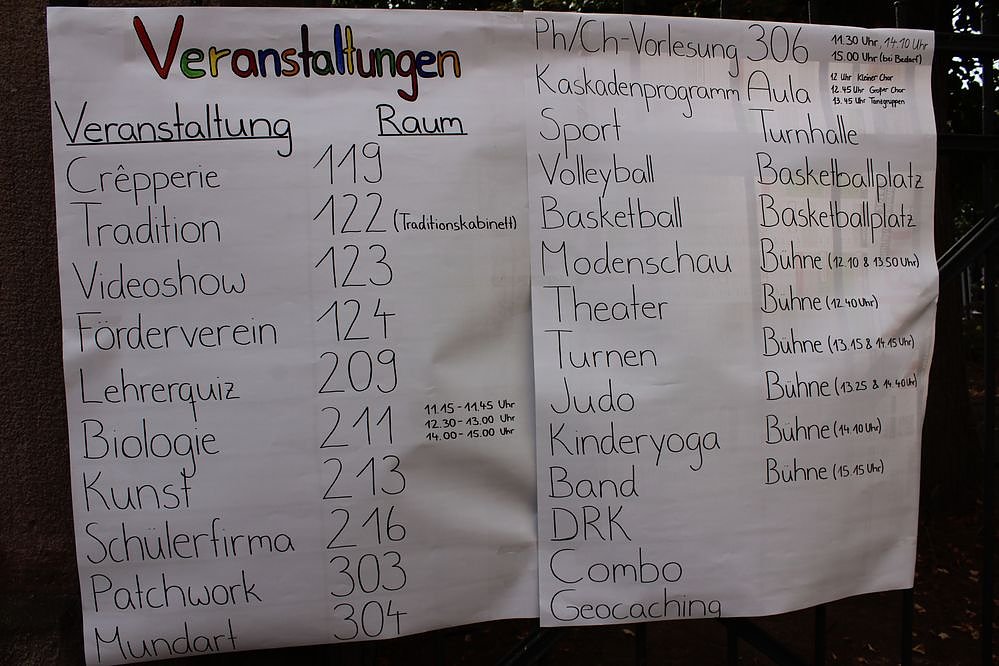 Veranstaltungen
Veranstaltung Raum
Crêpperie 119
Tradition 122 (Traditionskabinett)
Videoshow 123
Förderverein 124
Lehrerquiz 209
Biologie 211 11.15-11.45 Uhr
12.30-13.00 Uhr
14.00-15.00 Uhr
Kunst 213
Schülerfirma 216
Patchwork 303
Mundart 304
Ph/Ch-Vorlesung 306 11.30 Uhr, 14.10 Uhr
15.00 Uhr (bei Bedarf)
Kaskadenprogramm Aula 12 Uhr Kleiner Chor
12.45 Uhr Großer Chor
13.45 Uhr Tanzgruppen
Sport Turnhalle
Volleyball Basketballplatz
Basketball Basketballplatz
Modenschau Bühne (12.10 & 13.50 Uhr)
Theater Bühne (12.40 Uhr)
Turnen Bühne (13.15 & 14.15 Uhr)
Judo Bühne (13.25 & 14.40 Uhr)
Kinderyoga Bühne (14.10 Uhr)
Band Bühne (15.15 Uhr)
DRK
Combo
Geocaching